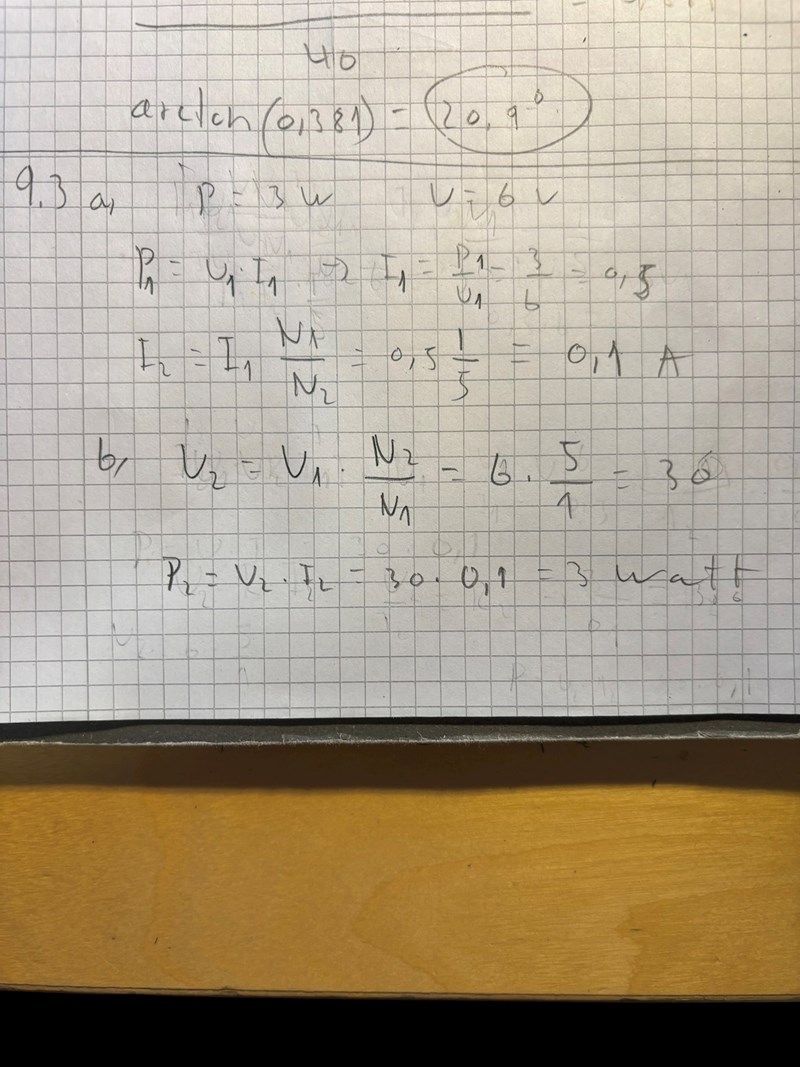 40
arctan(0,381) = 20,9°
9.3 a, P = 3 W U = 6 V
P₁ = U₁·I₁ → I₁ = P1/U1 = 3/6 = 0,5
I₂ = I₁ N1/N₂ = 0,5 1/5 = 0,1 A
b, U₂ = U₁· N2/N1 = 6·5/1 = 30
P₂ = U₂·I₂ = 30·0,1 = 3 watt